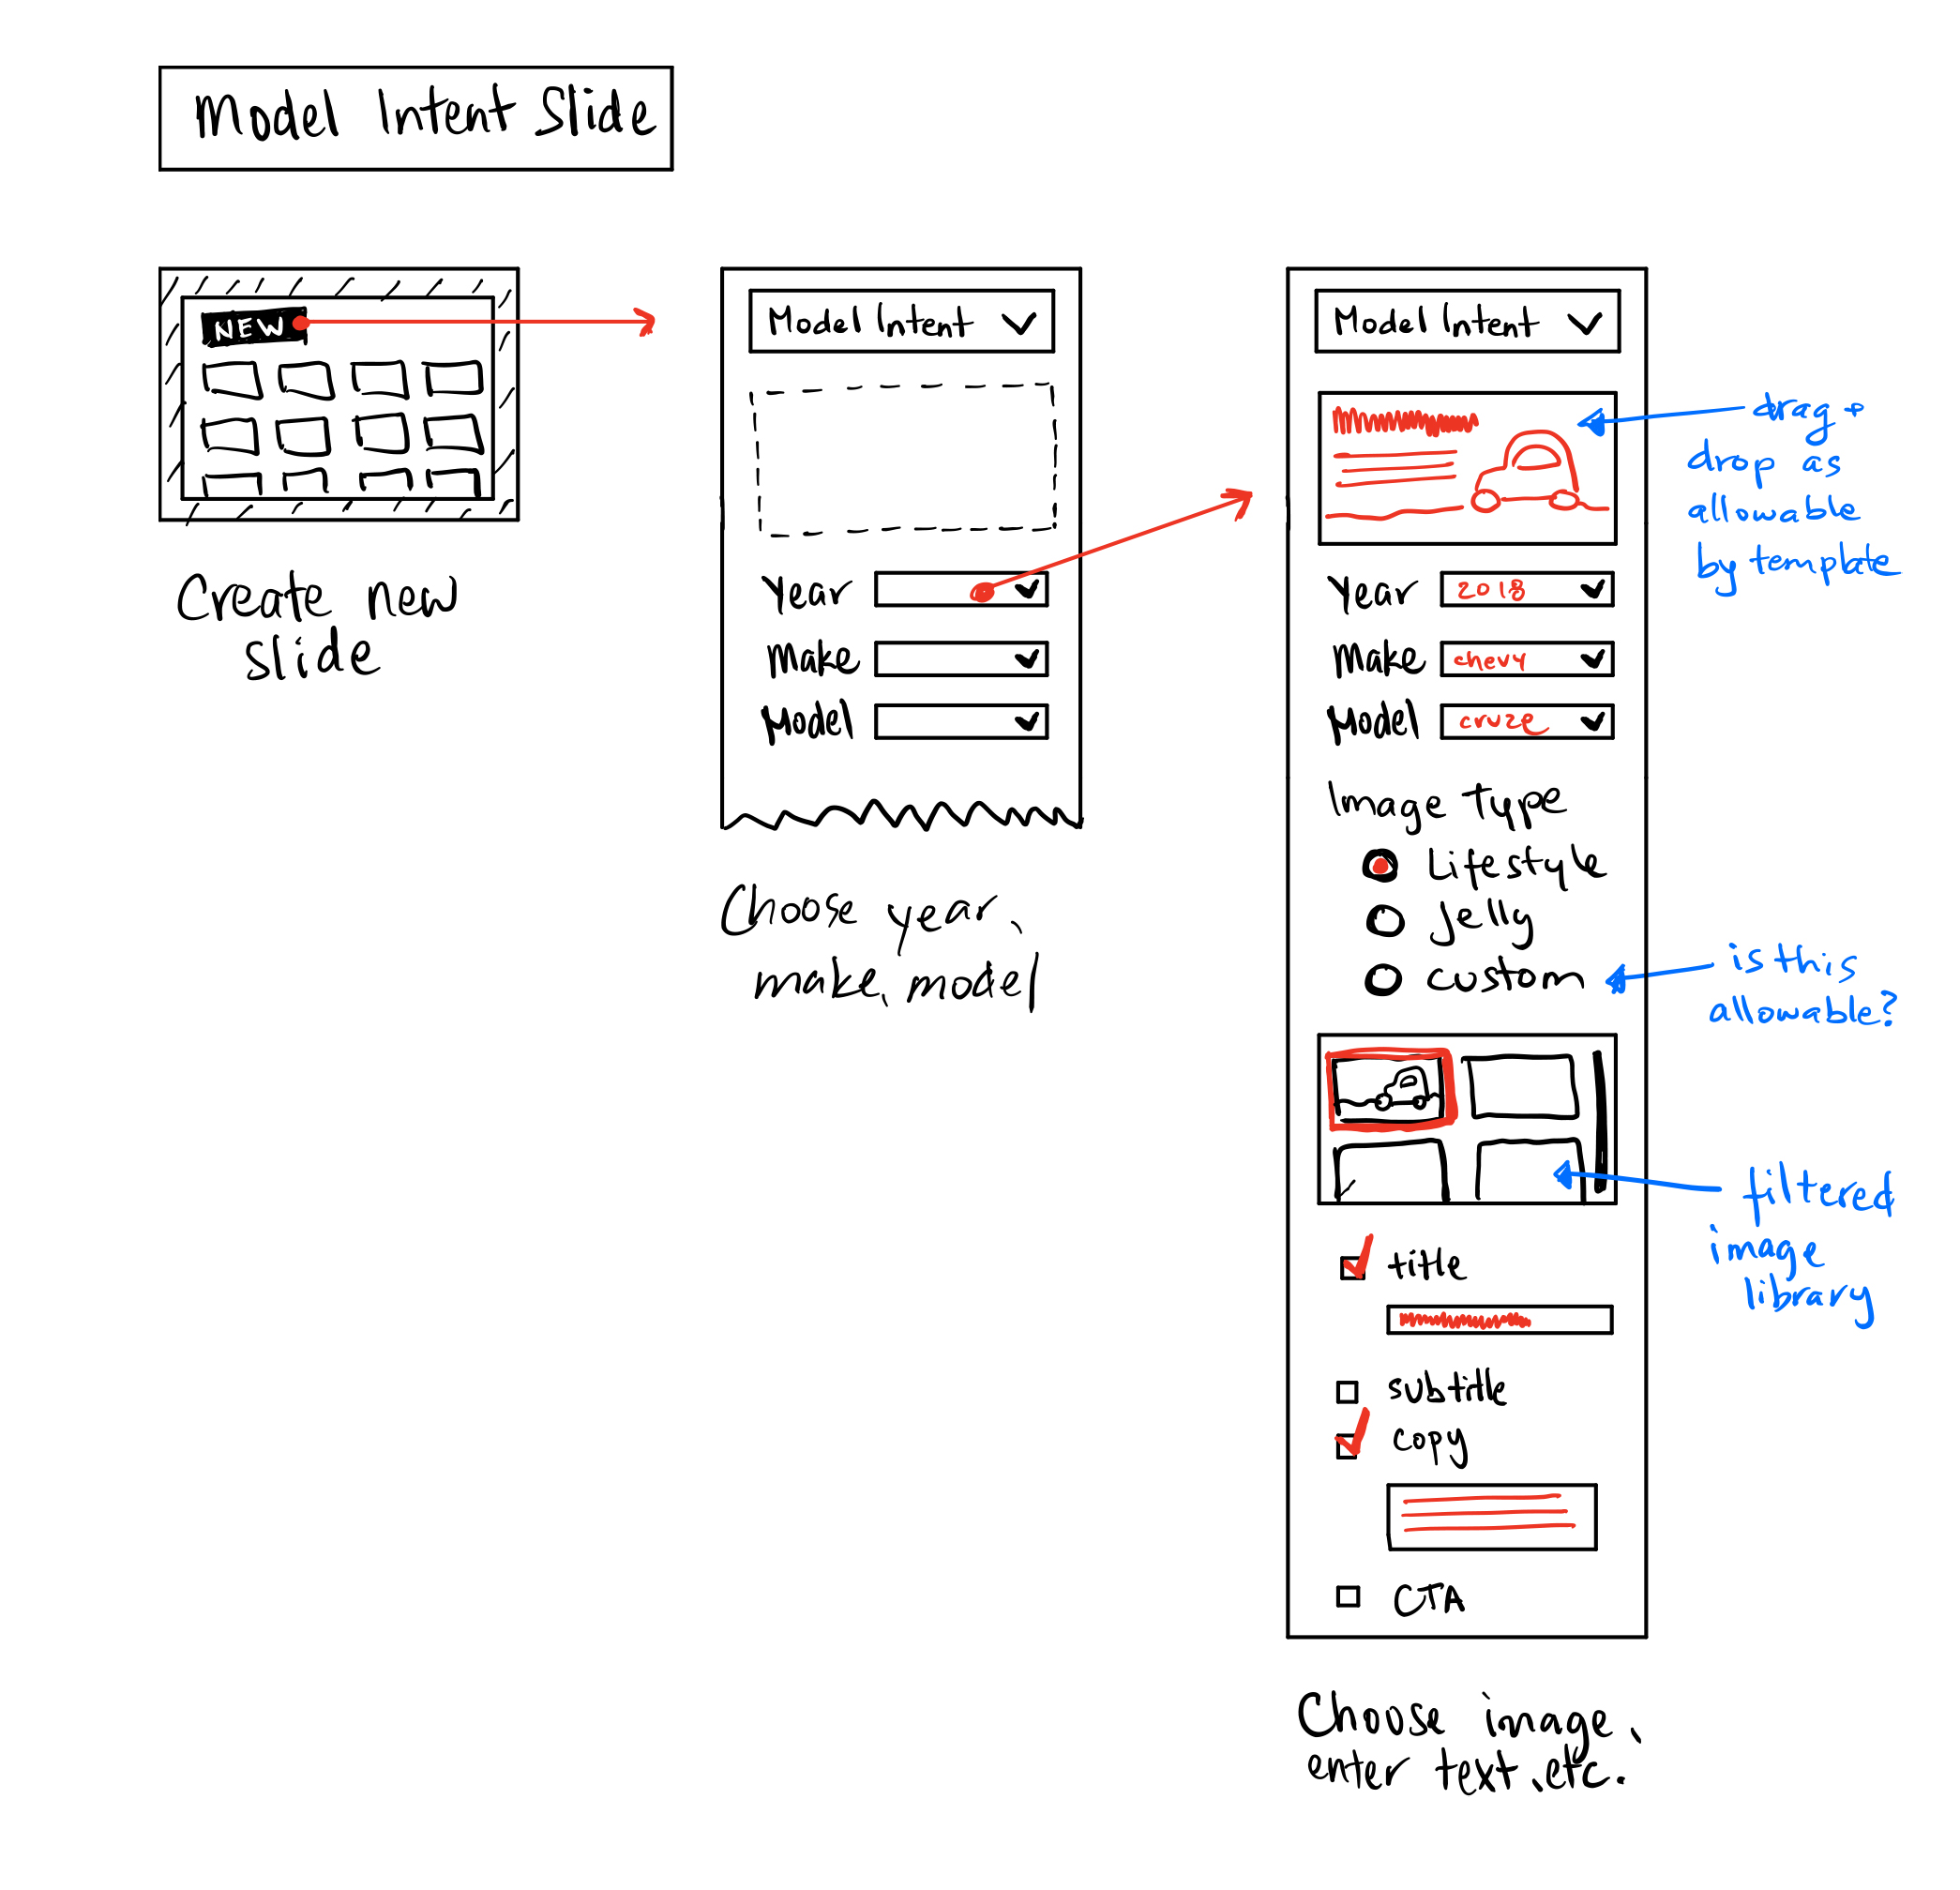 Model Intent Slide
NEW
Create new
slide
Model Intent
Year
Make
Model
Choose year,
make, model
Model Intent
drag +
drop as
allowable
by template
Year 2018
Make chevy
Model cruze
Image type
Lifestyle
Jelly
custom
is this
allowable?
filtered
image
library
title
subtitle
copy
CTA
Choose image,
enter text, etc.